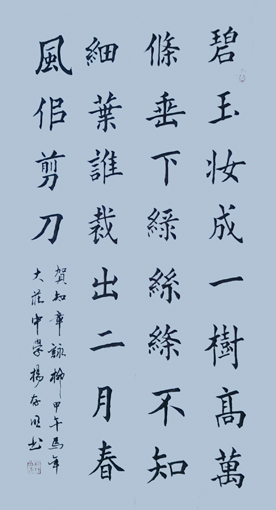 碧玉妆成一樹髙萬
條垂下綠絲絛不知
細葉誰裁出二月春
風佀剪刀
賀知章詠柳甲午馬年
大莊中學楊存书